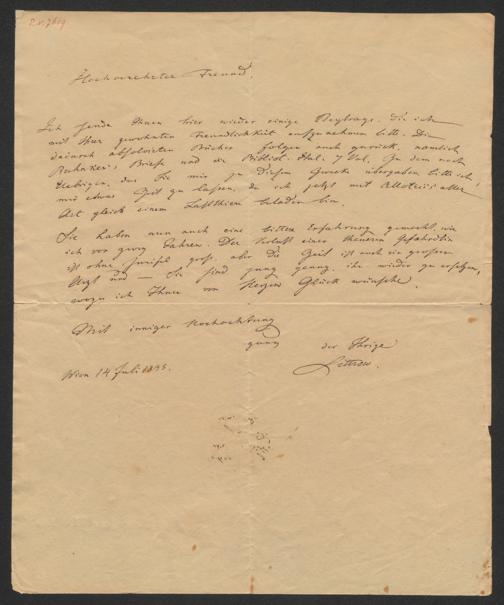 Hochverehrter Freund.
Ich sende Ihnen hier wieder einige Beyträge, die ich
mit Ihrer gewohnten Freundlichkeit aufzunehmen bitte. Die
dadurch absolvirten Bücher folgen auch zurück, nämlich
Briefe und die Bibliot. Ital. 7 Vol. Zu dem noch
Uebrigen, das Sie mir zu diesem Zwecke übergaben bitte ich,
mir etwas Zeit zu lassen, da ich jetzt mit Allotriis aller
Art gleich einem Lastthiere beladen bin.
Sie haben nun auch eine bittere Erfahrung gemacht, wie
ich vor Jahren. Der Verlust einer theueren Gefährtin
ist ohne Zweifel groß, aber die Zeit ist auch ein großer
Arzt und — Sie sind jung genug, ihn wieder zu ersetzen,
wozu ich Ihnen von Herzen Glück wünsche.
Mit inniger Hochachtung
ganz der Ihrige
Littrow.
Wien 14 Juli